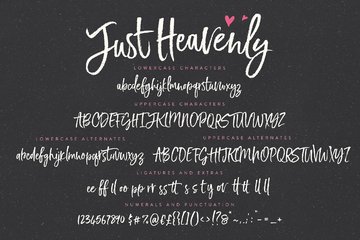 Just Heavenly
LOWERCASE CHARACTERS
abcdefghijklmnopqrstuvwxyz
UPPERCASE CHARACTERS
ABCDEFGHIJKLMNOPQRSTUVWXYZ
LOWERCASE ALTERNATES
abcdefghijklmnopqrstuvwxyz
UPPERCASE ALTERNATES
ABCDEFGHIJKLMNOPQRSTUVWXYZ
LIGATURES AND EXTRAS
ee ff ll oo pp rr ss tt
NUMERALS AND PUNCTUATION
1234567890